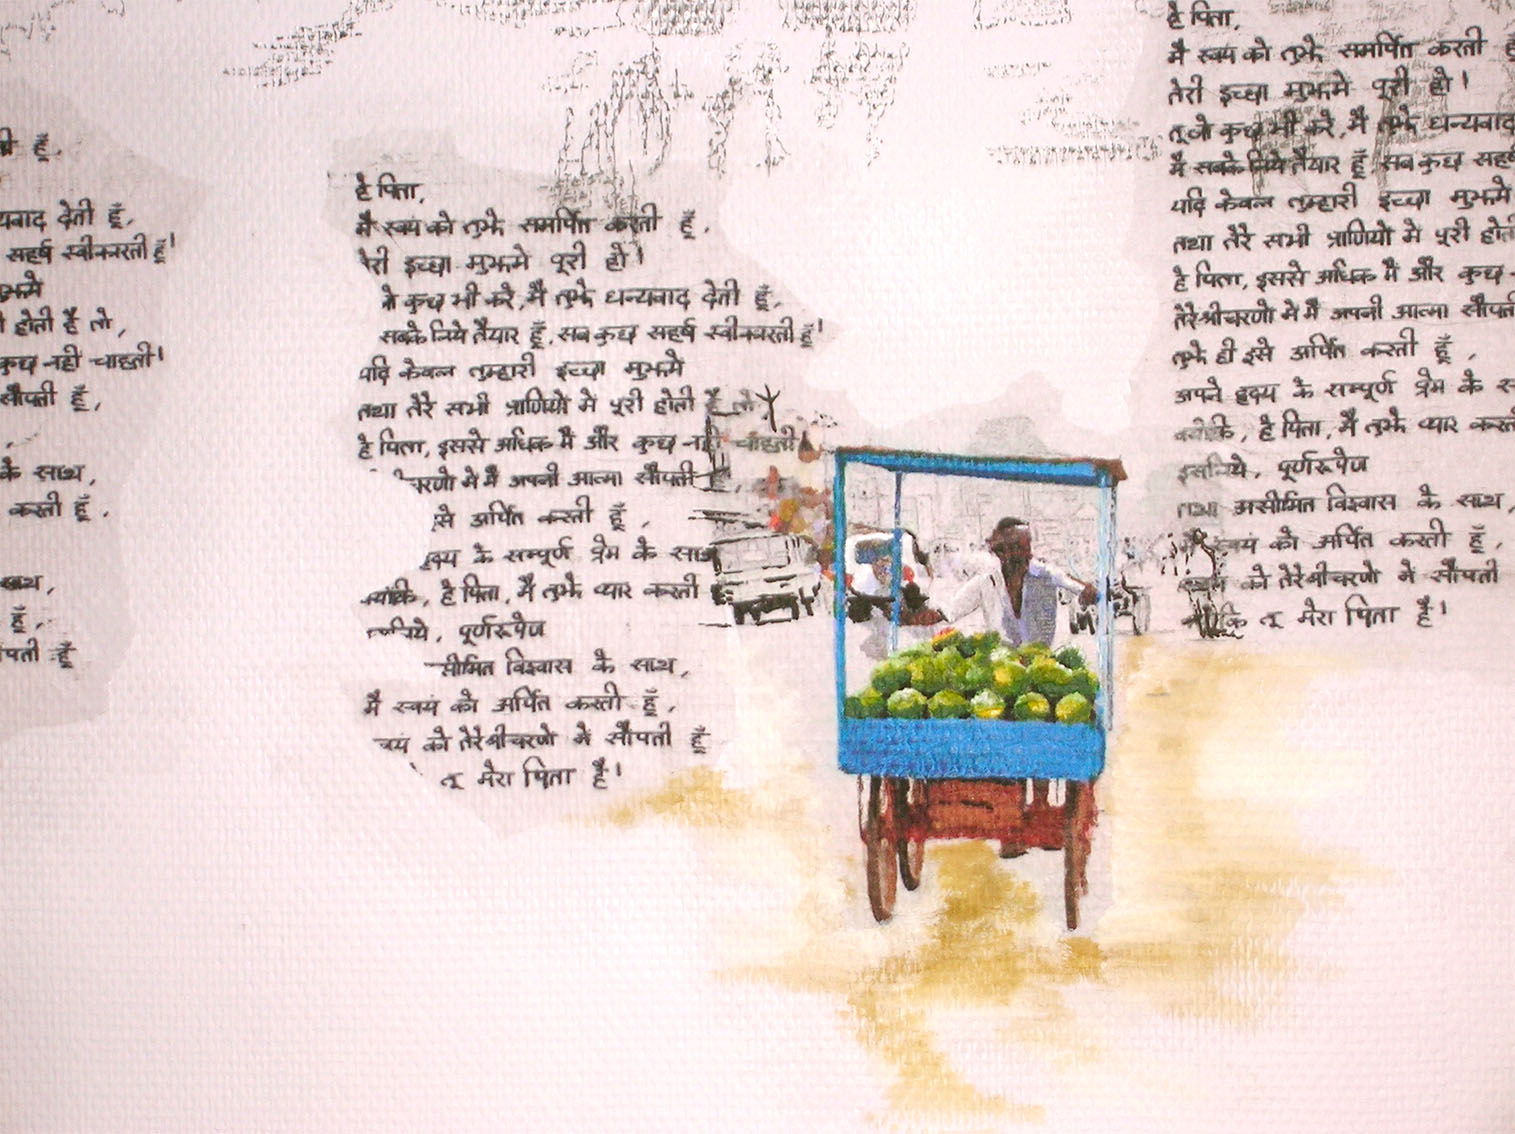 हूँ,
देती हूँ,
सहर्ष स्वीकारती हूँ!
होती है तो,
कुछ नही चाहती!
सौपती हूँ,
के साथ,
करती हूँ,
साथ,
हूँ,
हूँ
हे पिता,
मै स्वयं को तुझे समर्पित करती हूँ,
तेरी इच्छा मुझमे पूरी हो!
जो कुछ भी करे, मै तुझे धन्यवाद देती हूँ,
सबके लिये तैयार हूँ, सब कुछ सहर्ष स्वीकारती हूँ!
यदि केवल तुम्हारी इच्छा मुझमे
तथा तेरे सभी प्राणियो मे पूरी होती है तो,
हे पिता, इससे अधिक मै और कुछ नही चाहती
मे मै अपनी आत्मा सौपती
अर्पित करती हूँ,
के सम्पूर्ण प्रेम के साथ
क्योकि, हे पिता, मै तुझे प्यार करती
पूर्णरूपेण
विश्वास के साथ,
मै स्वयं को अर्पित करती हूँ,
को तेरे श्रीचरणो मे सौपती हूँ
तू मेरा पिता है!
हे पिता,
मै स्वयं को तुझे समर्पित करती
तेरी इच्छा मुझमे पूरी हो!
तू जो कुछ भी करे, मै तुझे धन्यवाद
मै सबके लिये तैयार हूँ, सब कुछ सहर्ष
यदि केवल तुम्हारी इच्छा मुझमे
तथा तेरे सभी प्राणियो मे पूरी होती
हे पिता, इससे अधिक मै और कुछ
तेरे श्रीचरणो मे मै अपनी आत्मा सौपती
तुझे ही इसे अर्पित करती हूँ,
अपने हृदय के सम्पूर्ण प्रेम के
क्योकि, हे पिता, मै तुझे प्यार करती
इसलिये, पूर्णरूपेण
तथा असीमित विश्वास के साथ,
स्वयं को अर्पित करती हूँ,
स्वयं को तेरे श्रीचरणो मे सौपती
तू मेरा पिता है!